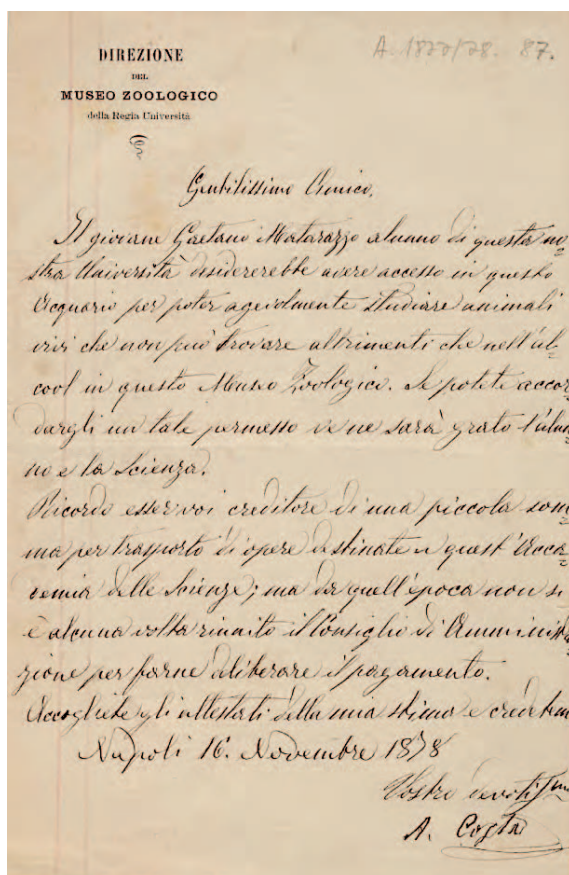 DIREZIONE
DEL
MUSEO ZOOLOGICO
della Regia Università
A. 1877/78. 87.
Gentilissimo Amico,
Il giovane Gaetano Matarazzo alunno di questa no=
stra Università desidererebbe avere accesso in questo
Acquario per poter agevolmente studiare animali
vivi che non può trovare altrimenti che nell'al=
cool in questo Museo Zoologico. Se potete accor=
dargli un tale permesso ve ne sarà grato l'alun=
no e la Scienza.
Ricordo esser voi creditore di una piccola som=
ma per trasporto di opere destinate a quest'Acca=
demia delle Scienze; ma da quell'epoca non si
è alcuna volta riunito il Consiglio di Amministra
zione per farne deliberare il pagamento.
Accogliete gli attestati della mia stima e credetemi
Napoli 16. Novembre 1878
Vostro devotissmo
A. Costa